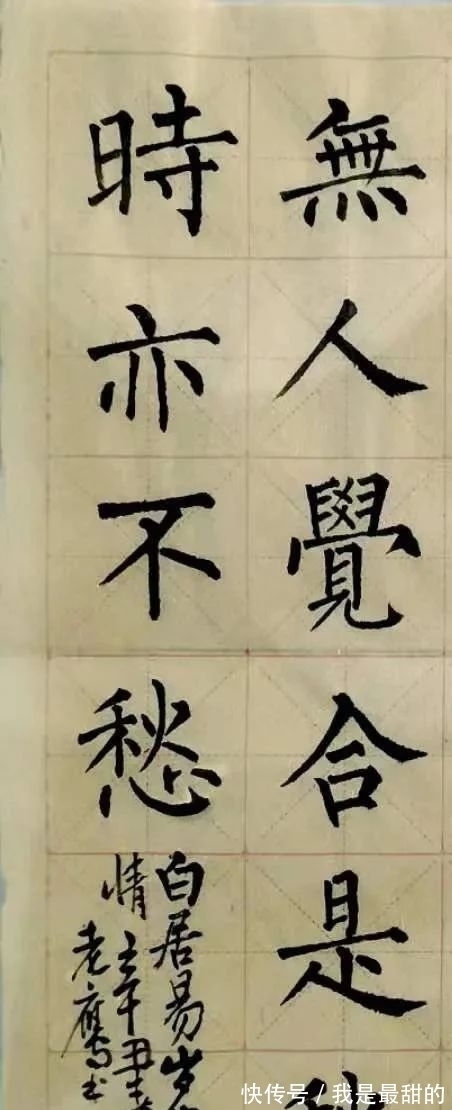 無人覺合是
時亦不愁
白居易岁
情
老鹰书
快传号/我是最甜的